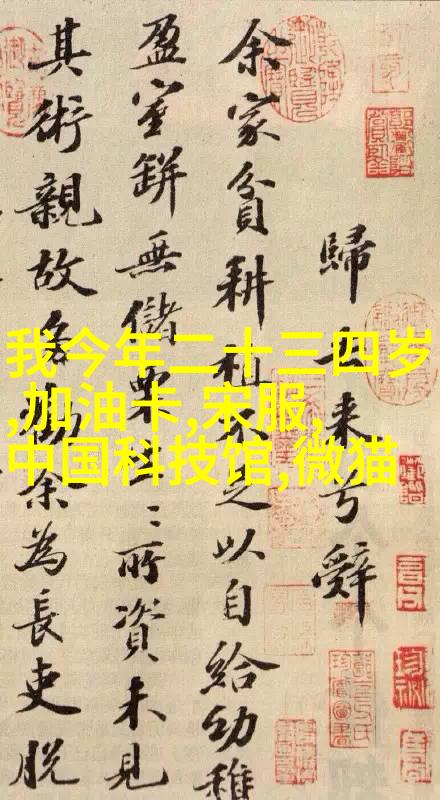 我今年二十三四岁
,加油卡,宋服,
中国科技馆,微猫
歸去来兮辭
余家貧耕植不足以自給幼稚
盈室缾無儲粟生〻所資未見
其術親故多勸余為長吏脱